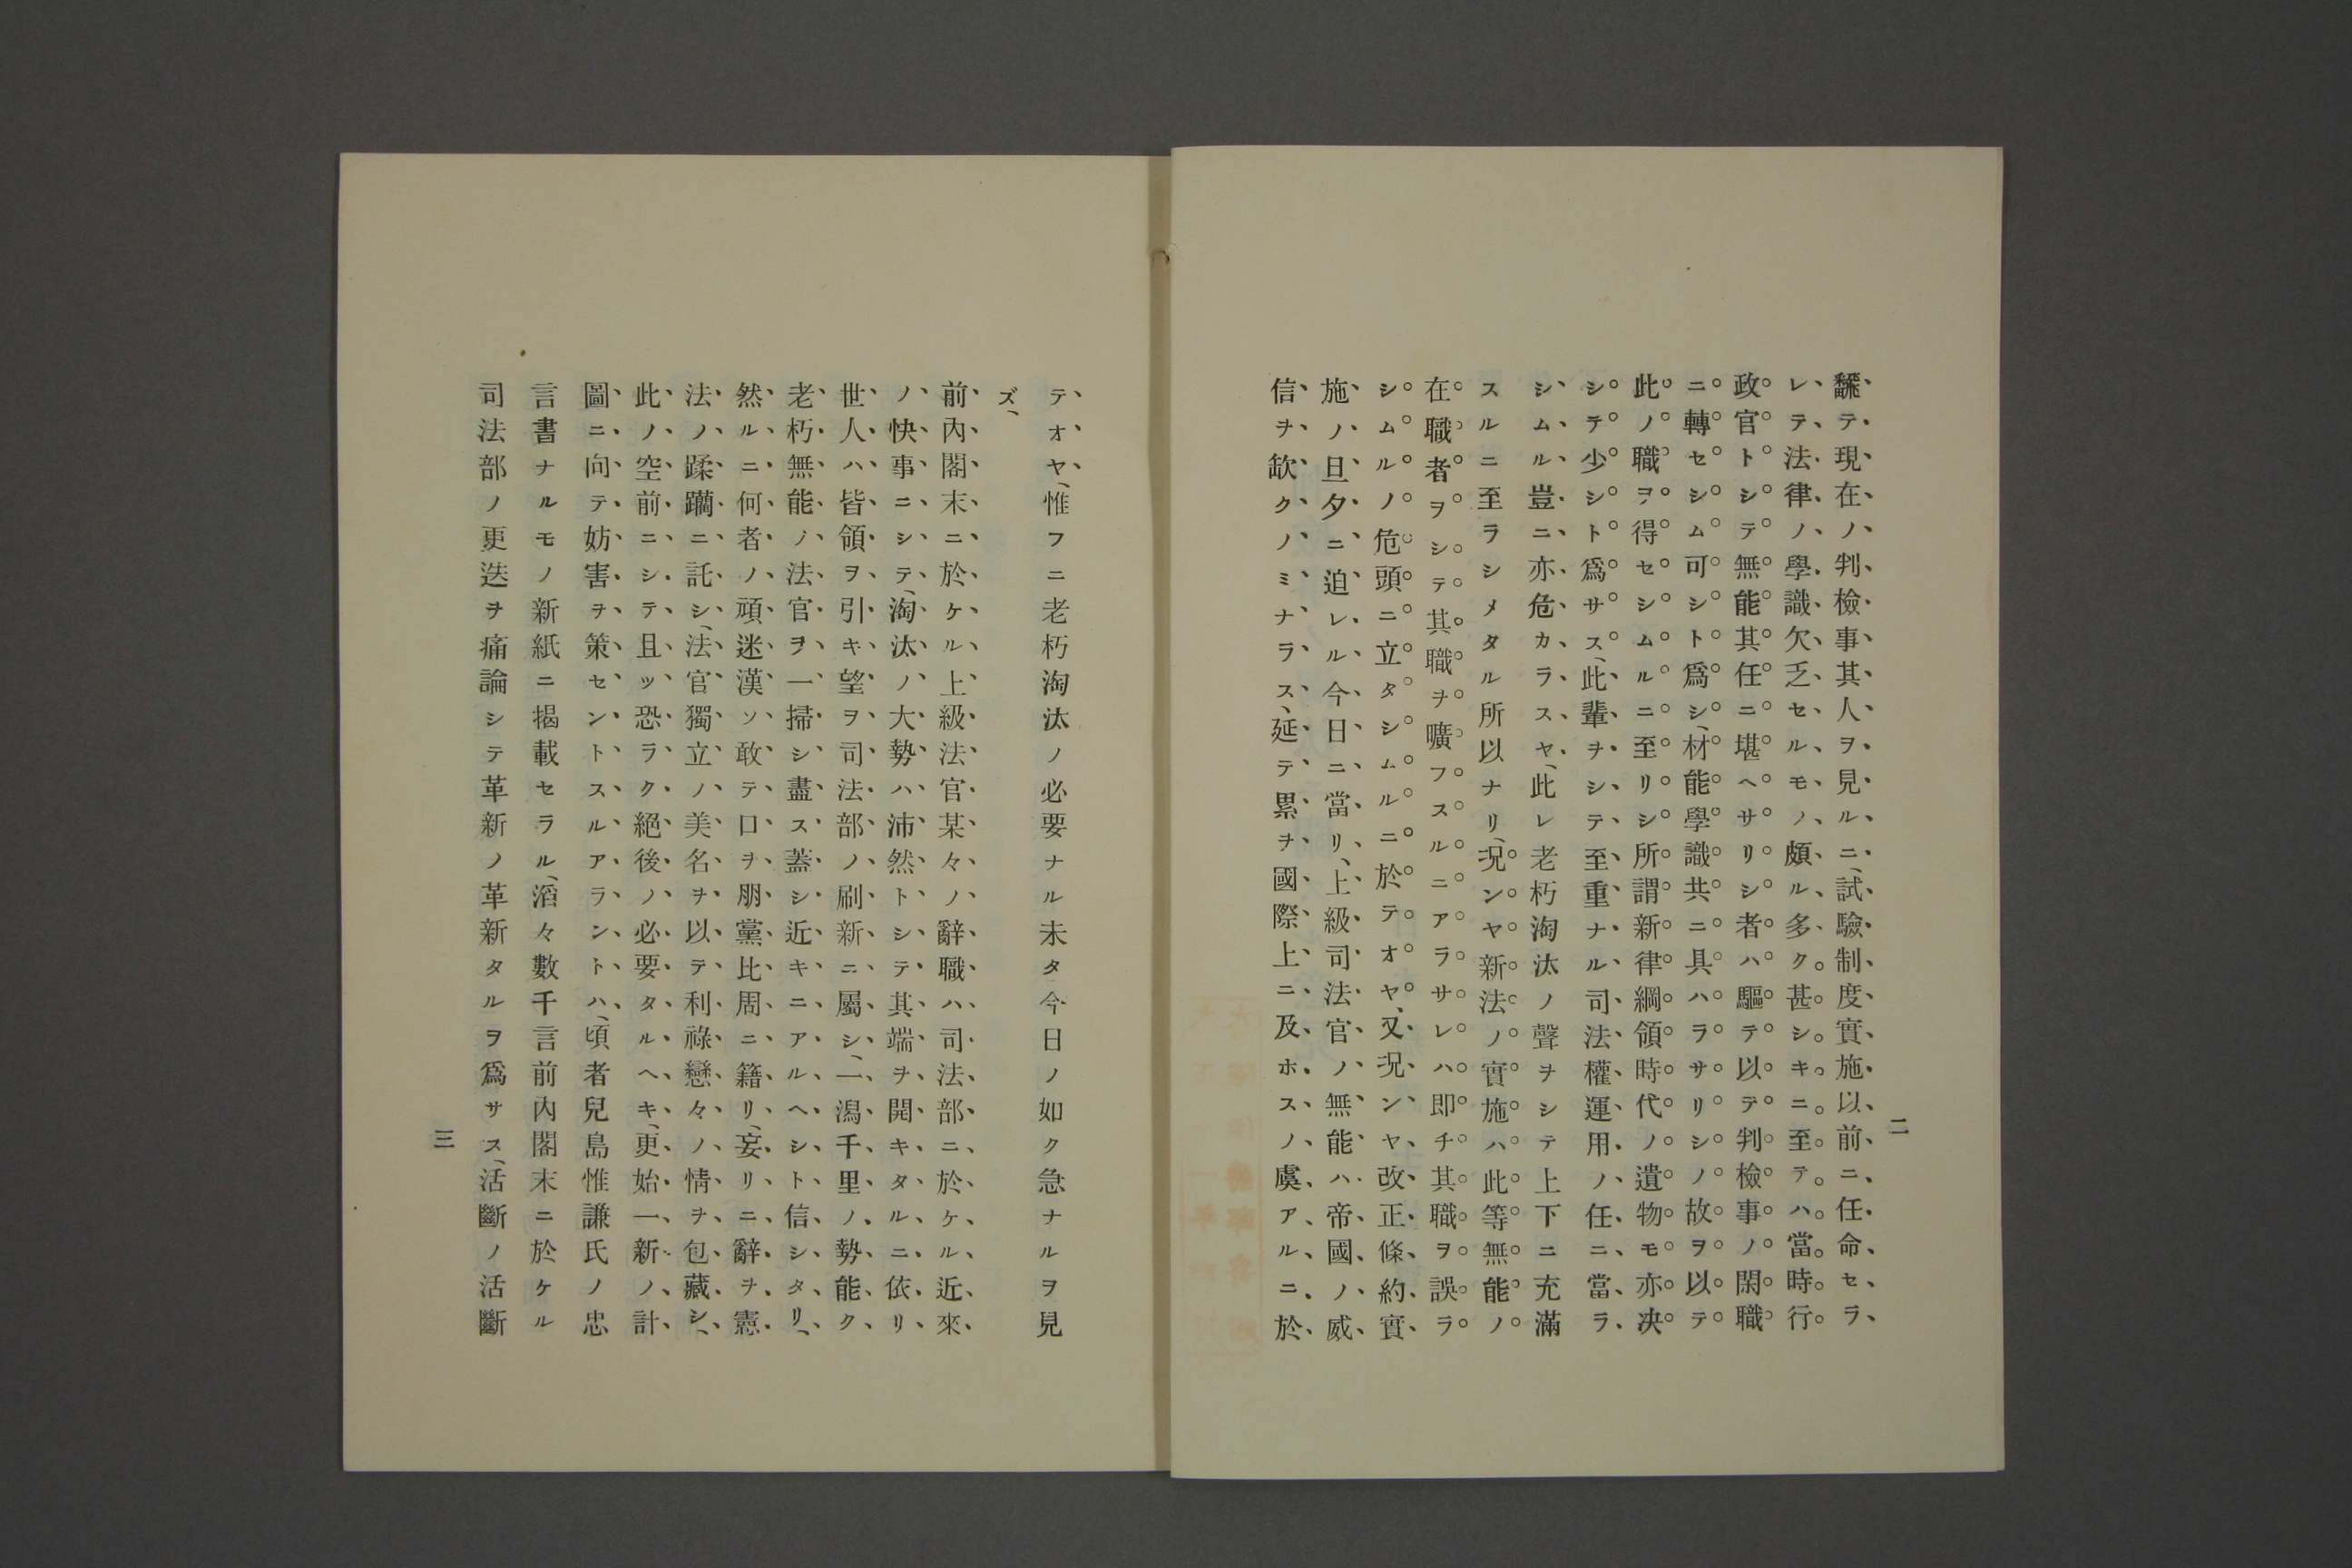 二
飜テ現在ノ判檢事其人ヲ見ルニ、試驗制度實施以前ニ任命セラ
レテ法律ノ學識欠乏セルモノ頗ル多ク甚シキニ至テハ當時行
政官トシテ無能其任ニ堪ヘサリシ者ハ驅テ以テ判檢事ノ閑職
ニ轉セシム可シト爲シ、材能學識共ニ具ハラサリシノ故ヲ以テ
此ノ職ヲ得セシムルニ至リシ所謂新律綱領時代ノ遺物モ亦决
シテ少シト爲サス、此輩ヲシテ至重ナル司法權運用ノ任ニ當ラ
シムル豈ニ亦危カラスヤ、此レ老朽淘汰ノ聲ヲシテ上下ニ充滿
スルニ至ラシメタル所以ナリ、况ンヤ新法ノ實施ハ此等無能ノ
在職者ヲシテ其職ヲ曠フスルニアラサレハ即チ其職ヲ誤ラ
シムルノ危頭ニ立タシムルニ於テオヤ、又况ンヤ改正條約實
施ノ旦夕ニ迫レル今日ニ當リ、上級司法官ノ無能ハ帝國ノ威
信ヲ欿クノミナラス、延テ累ヲ國際上ニ及ホスノ虞アルニ於
テオヤ、惟フニ老朽淘汰ノ必要ナル未タ今日ノ如ク急ナルヲ見
ズ、
前內閣末ニ於ケル上級法官某々ノ辭職ハ司法部ニ於ケル近來
ノ快事ニシテ、淘汰ノ大勢ハ沛然トシテ其端ヲ開キタルニ依リ
世人ハ皆領ヲ引キ望ヲ司法部ノ刷新ニ屬シ、一潟千里ノ勢能ク
老朽無能ノ法官ヲ一掃シ盡ス蓋シ近キニアルヘシト信シタリ、
然ルニ何者ノ頑迷漢ソ敢テ口ヲ朋黨比周ニ籍リ、妄リニ辭ヲ憲
法ノ蹂躪ニ託シ、法官獨立ノ美名ヲ以テ利祿戀々ノ情ヲ包藏シ、
此ノ空前ニシテ且ッ恐ラク絕後ノ必要タルヘキ、更始一新ノ計
圖ニ向テ妨害ヲ策セントスルアラントハ、頃者兒島惟謙氏ノ忠
言書ナルモノ新紙ニ揭載セラル、滔々數千言前內閣末ニ於ケル
司法部ノ更迭ヲ痛論シテ革新ノ革新タルヲ爲サス、活斷ノ活斷
三